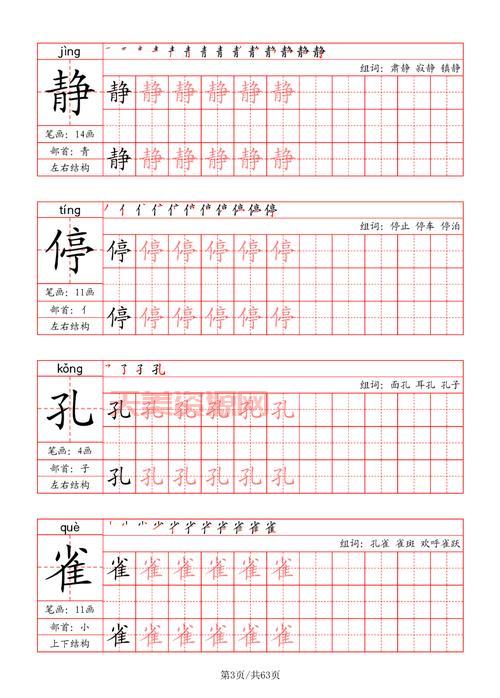 jìng
静
组词：肃静 寂静 镇静
静 静 静 静 静 静
笔画：14画
部首：青
静 静 静 静 静 静
左右结构
tíng
停
组词：停止 停车 停泊
停 停 停 停 停 停
笔画：11画
部首：亻
停 停 停 停 停 停
左右结构
kǒng
孔
组词：面孔 耳孔 孔子
孔 孔 孔 孔 孔 孔
笔画：4画
部首：子
孔 孔 孔 孔 孔 孔
左右结构
què
雀
组词：孔雀 雀斑 欢呼雀跃
雀 雀 雀 雀 雀 雀
笔画：11画
部首：小
雀 雀 雀 雀 雀 雀
上下结构
第3页/共63页